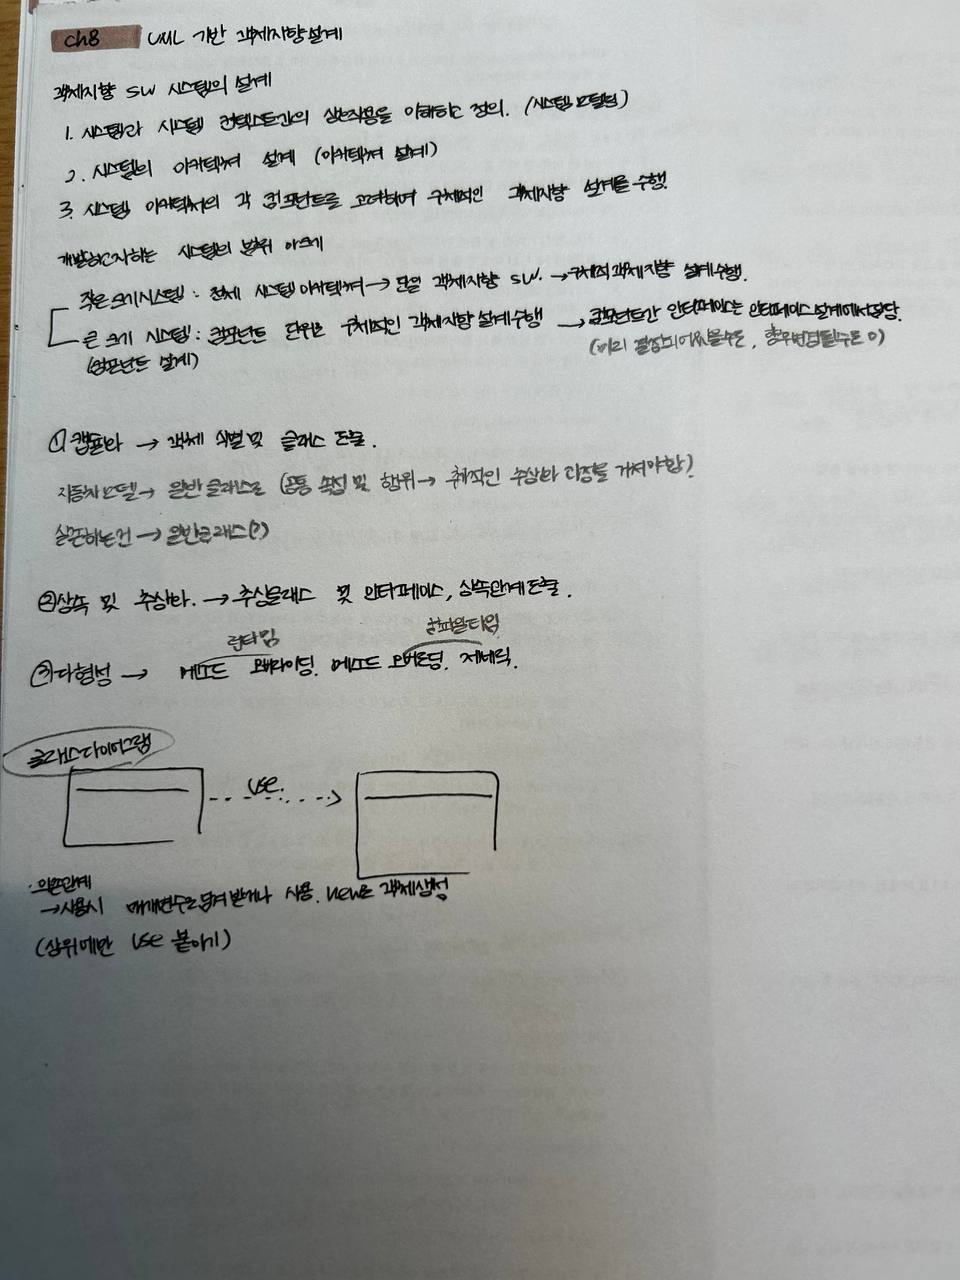 ch8 UML 기반 객체지향설계
객체지향 SW 시스템의 설계
1. 시스템과 시스템 컨텍스트간의 상호작용을 이해하고 정의. (시스템 모델링)
2. 시스템의 아키텍쳐 설계 (아키텍쳐 설계)
3. 시스템 아키텍처의 각 컴포넌트를 고려하여 구체적인 객체지향 설계를 수행.
개발하고자하는 시스템의 범위
작은크기시스템 : 전체 시스템아키텍쳐 → 단일 객체지향 SW. → 구체적객체지향 설계수행.
큰 크기 시스템 : 컴포넌트 단위로 구체적인 객체지향설계수행 → 컴포넌트간 인터페이스는 인터페이스설계에서담당.
(컴포넌트 설계) (미리 결정되어있을수도, 향후변경될수도 o)
① 캡슐화 → 객체 식별 및 클래스 도출.
자동차모델 → 일반클래스로 (공통 속성 및 행위 → 추상화 과정을 거쳐야함!
실존하는건 → 일반클래스(?)
② 상속 및 추상화. → 추상클래스 및 인터페이스, 상속관계도출.
런타임 컴파일타임
③ 다형성 → 메소드 오버라이딩. 메소드 오버로딩. 제네릭.
클래스다이어그램
use.
· 의존관계
→ 사용시 매개변수로넘겨받거나 사용. new로 객체생성
(상위에만 use 붙이기)